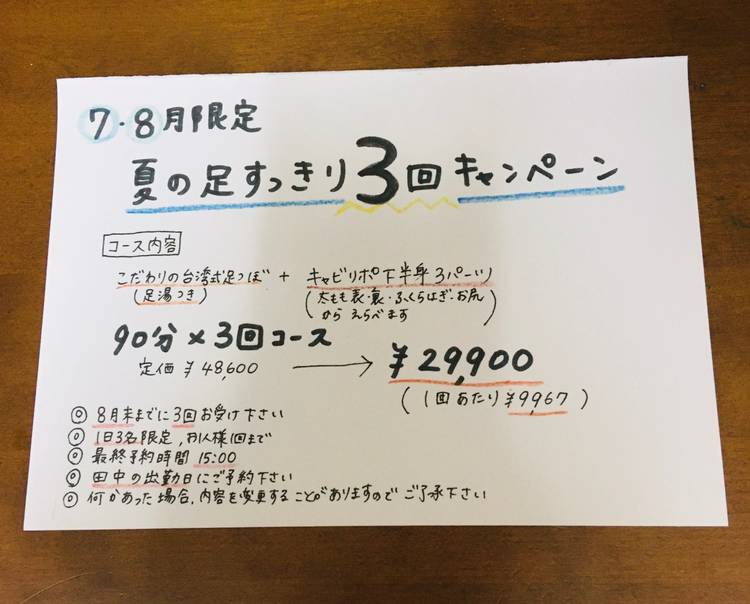 7・8月限定
夏の足すっきり3回キャンペーン
コース内容
こだわりの台湾式足つぼ + キャビリポ下半身3パーツ
(足湯つき) (太もも表・裏・ふくらはぎ・お尻
からえらべます)
90分×3回コース
定価 ¥48,600 → ¥29,900
(1回あたり¥9,967)
◎ 8月末までに3回お受け下さい
◎ 1日3名限定、お1人様1回まで
◎ 最終予約時間 15:00
◎ 田中の出勤日にご予約下さい
◎ 何かあった場合、内容を変更することがありますのでご了承下さい